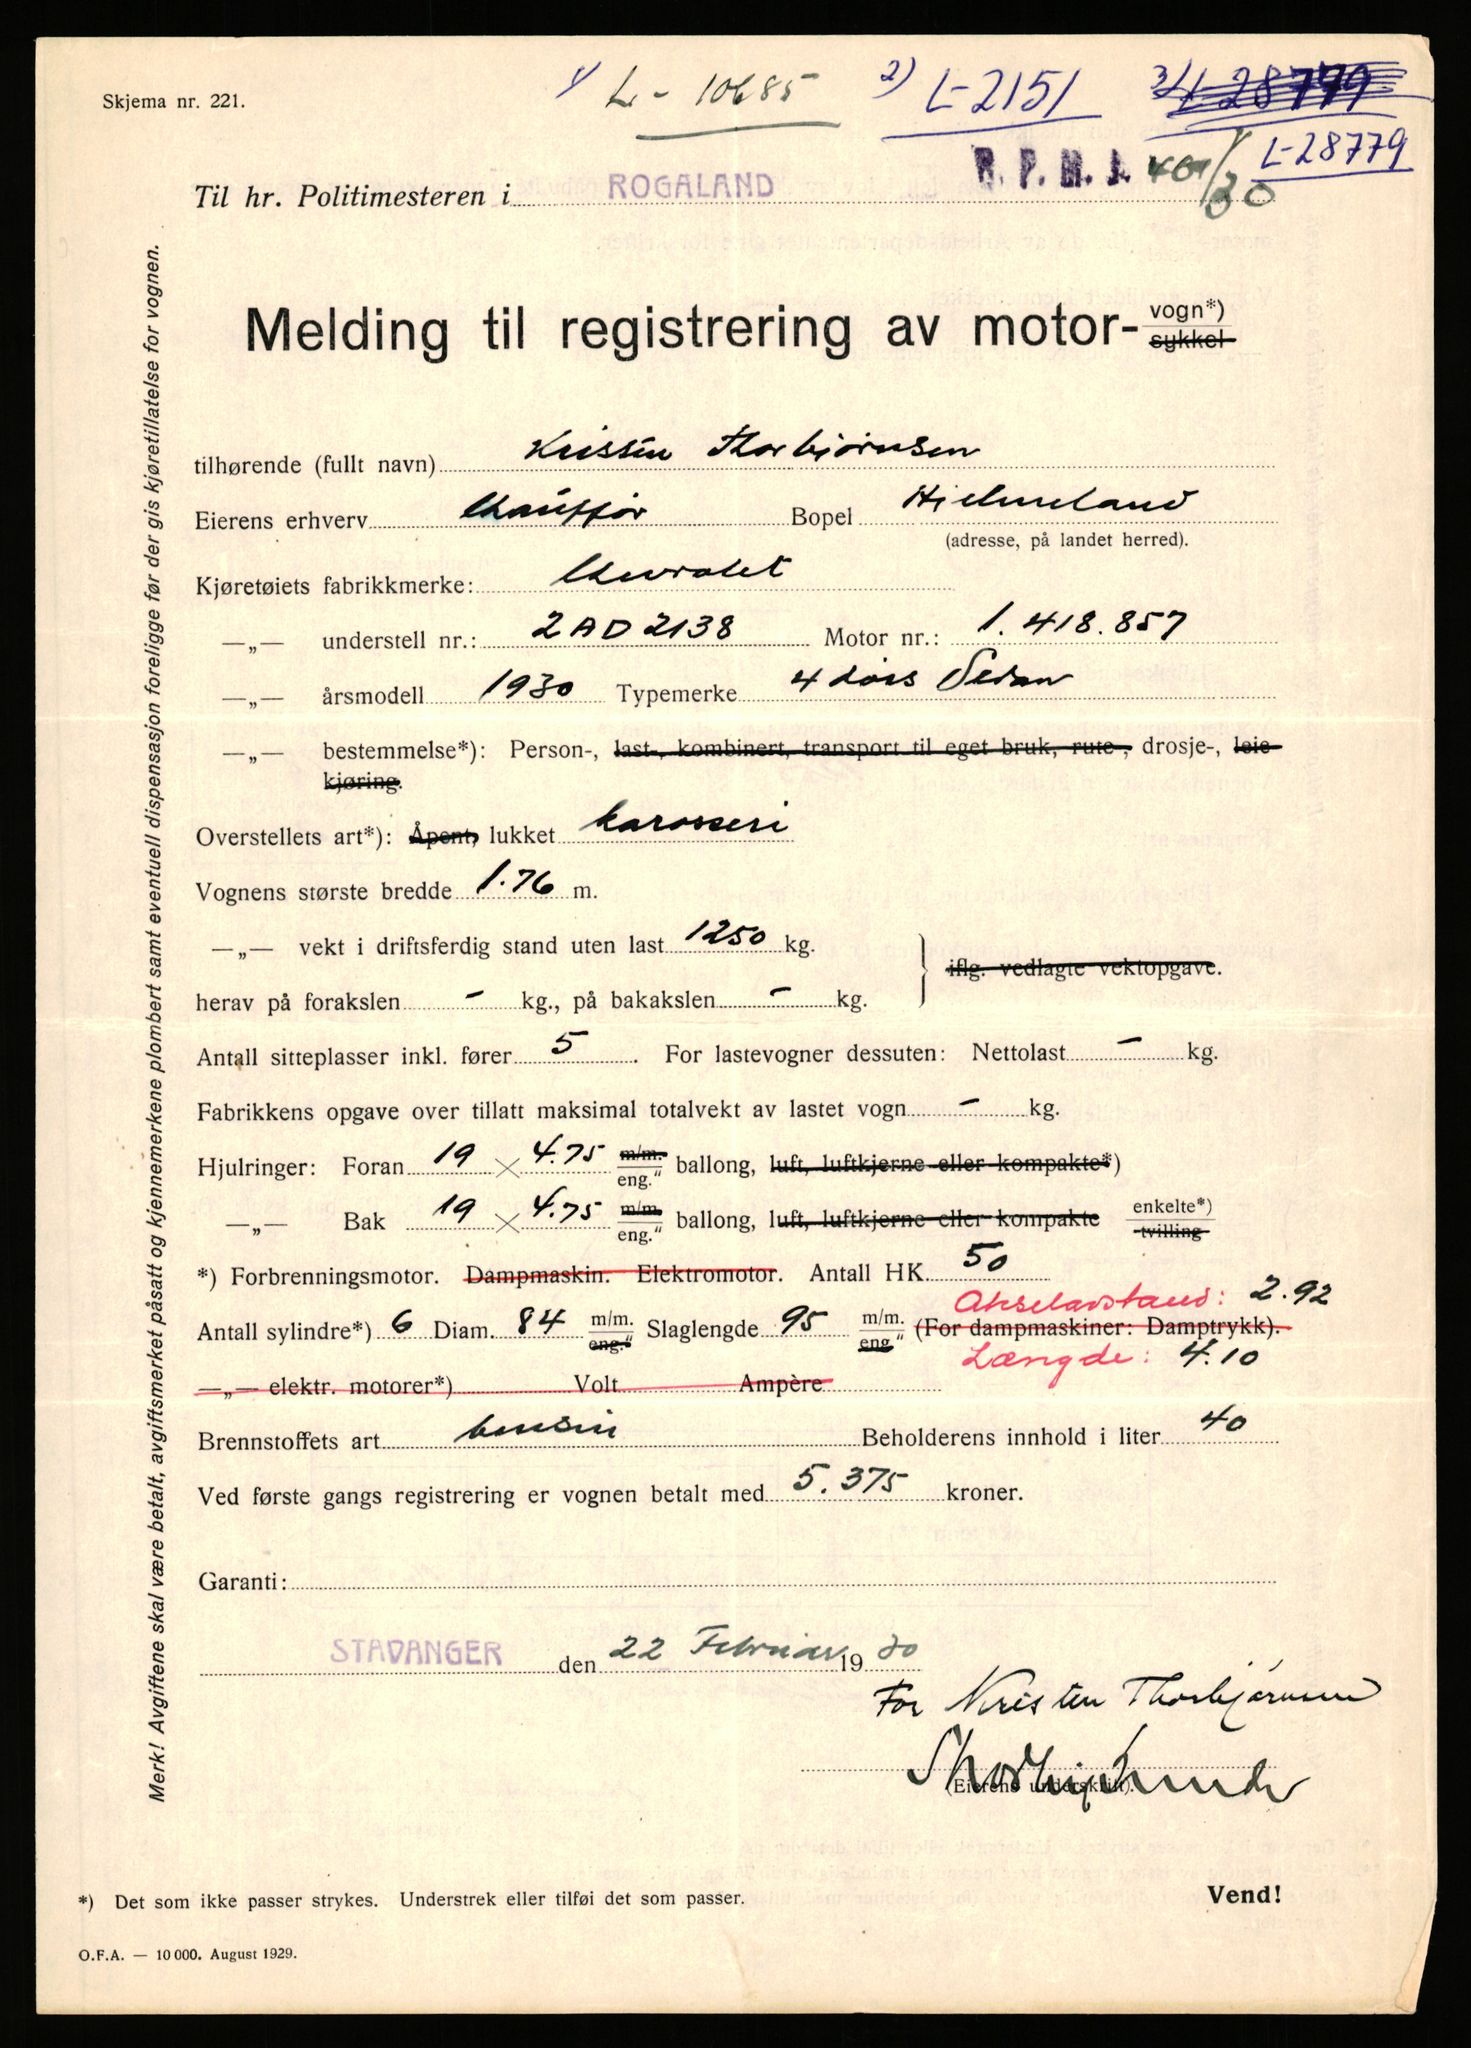 Skjema nr. 221.
1) L - 10685 2) L-2151 3) L-28779
L-28779
R. P. M. J. 401/30
Til hr. Politimesteren i ROGALAND
Melding til registrering av motor- vogn*) sykkel
tilhørende (fullt navn) Kristen Thorbjørnsen
Eierens erhverv Chauffør Bopel Hjelmeland
(adresse, på landet herred).
Kjøretøiets fabrikkmerke: Chevrolet
—„— understell nr.: 2AD2138 Motor nr.: 1.418.857
—„— årsmodell 1930 Typemerke 4 dørs Sedan
—„— bestemmelse*): Person-, last-, kombinert, transport til eget bruk, rute-, drosje-, leie-
kjøring.
Overstellets art*): Åpent, lukket karosseri
Vognens største bredde 1.76 m.
—„— vekt i driftsferdig stand uten last 1250 kg.
iflg. vedlagte vektopgave.
herav på forakslen - kg., på bakakslen - kg.
Antall sitteplasser inkl. fører 5. For lastevogner dessuten: Nettolast - kg.
Fabrikkens opgave over tillatt maksimal totalvekt av lastet vogn - kg.
Hjulringer: Foran 19 × 4.75 m/m. eng." ballong, luft, luftkjerne eller kompakte*)
—„— Bak 19 × 4.75 m/m. eng." ballong, luft, luftkjerne eller kompakte enkelte*) tvilling
*) Forbrenningsmotor. Dampmaskin. Elektromotor. Antall HK. 50
Akselavstand: 2.92
Antall sylindre*) 6 Diam. 84 m/m. eng." Slaglengde 95 m/m. eng." (For dampmaskiner: Damptrykk).
Længde: 4.10
—„— elektr. motorer*) Volt Ampère
Brennstoffets art bensin Beholderens innhold i liter 40
Ved første gangs registrering er vognen betalt med 5.375 kroner.
Garanti:
STAVANGER den 22 Februar 1930
For Kristen Thorbjørnsen
(Eierens underskrift).
*) Det som ikke passer strykes. Understrek eller tilføi det som passer.
Vend!
O.F.A. — 10 000. August 1929.
Merk! Avgiftene skal være betalt, avgiftsmerket påsatt og kjennemerkene plombert samt eventuell dispensasjon foreligge før der gis kjøretillatelse for vognen.